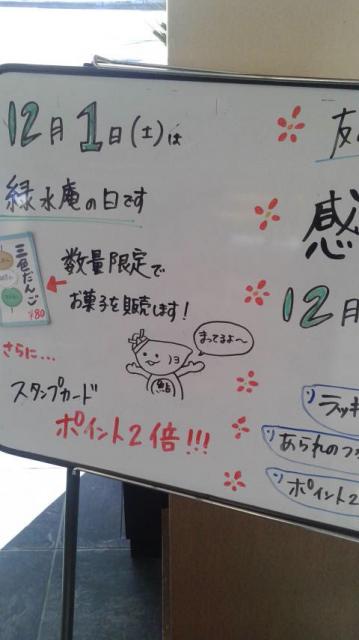 12月1日(土)は
緑水庵の日です
三色だんご
¥80
数量限定で
お菓子を販売します!
さらに...
まってるよ〜
スタンプカード
ポイント2倍!!!
友
感
12月
ラッキ
あられのつ
ポイント2